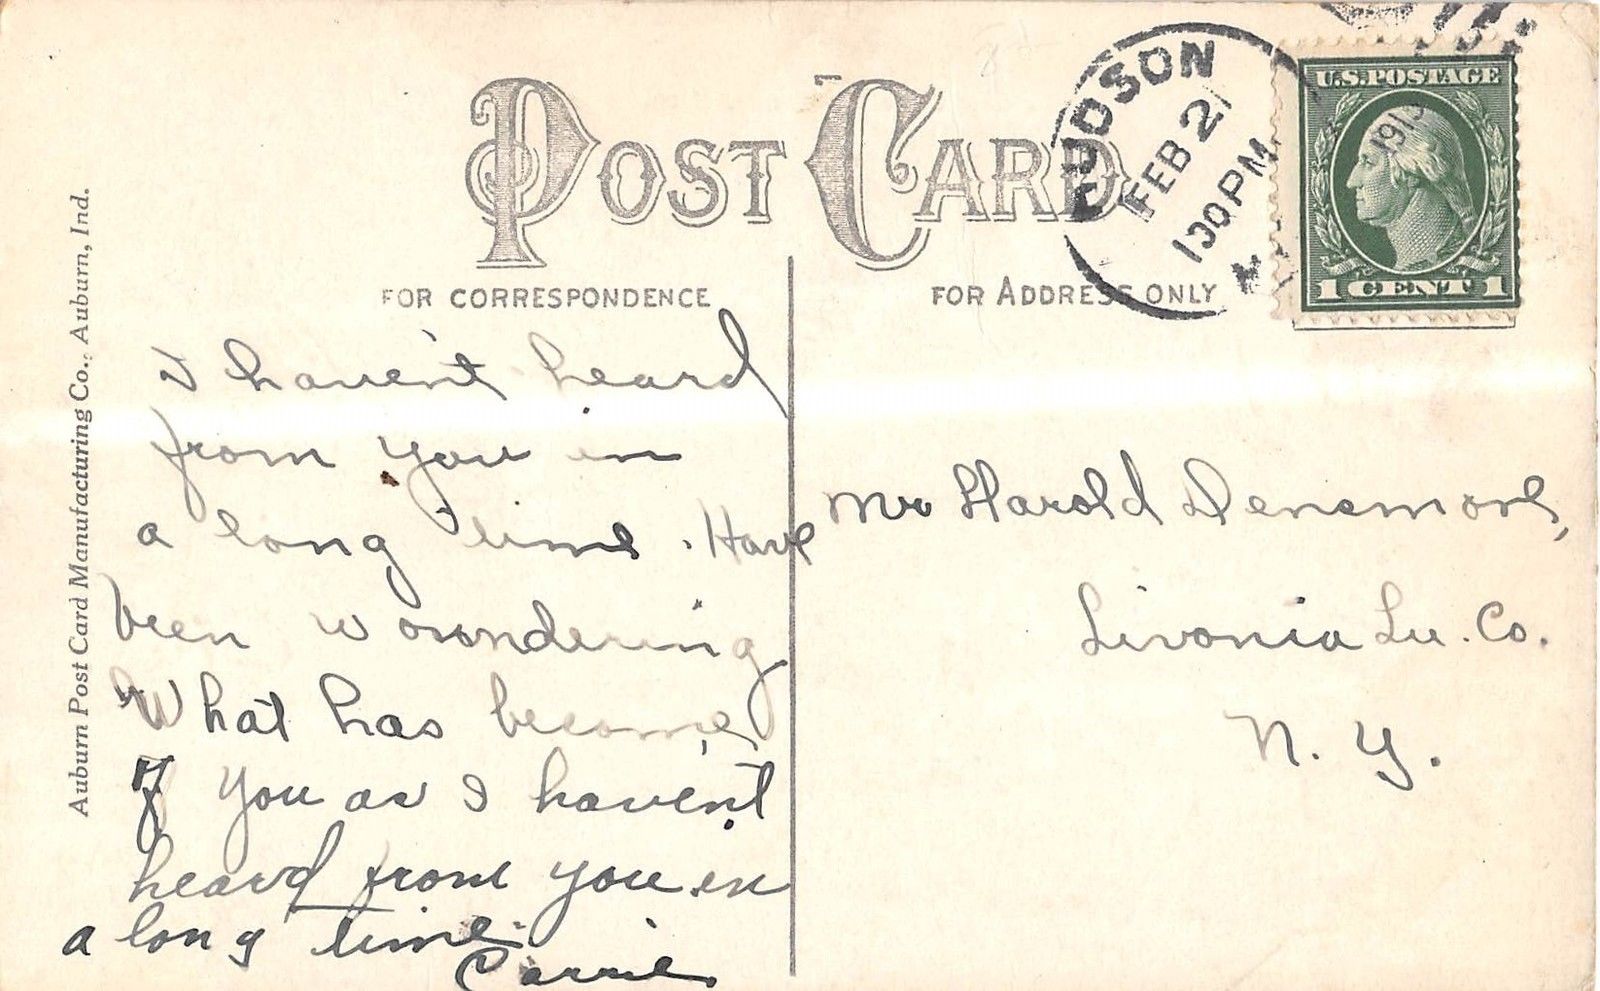 POST CARD
FOR CORRESPONDENCE
FOR ADDRESS ONLY
HUDSON
FEB 21
130 PM
1913
U.S. POSTAGE
1 CENT 1
Auburn Post Card Manufacturing Co., Auburn, Ind.
I haven't heard
from you in
a long time. Have
been wondering
What has become
of you as I haven't
heard from you in
a long time.
Carrie.
Mr Harold Densmore,
Livonia Liv. Co.
N. Y.